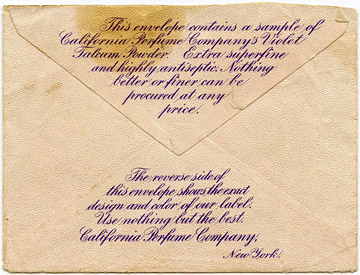 This envelope contains a sample of
California Perfume Company's Violet
Talcum Powder. Extra superfine
and highly antiseptic. Nothing
better or finer can be
procured at any
price.
The reverse side of
this envelope shows the exact
design and color of our label.
Use nothing but the best.
California Perfume Company,
New York.